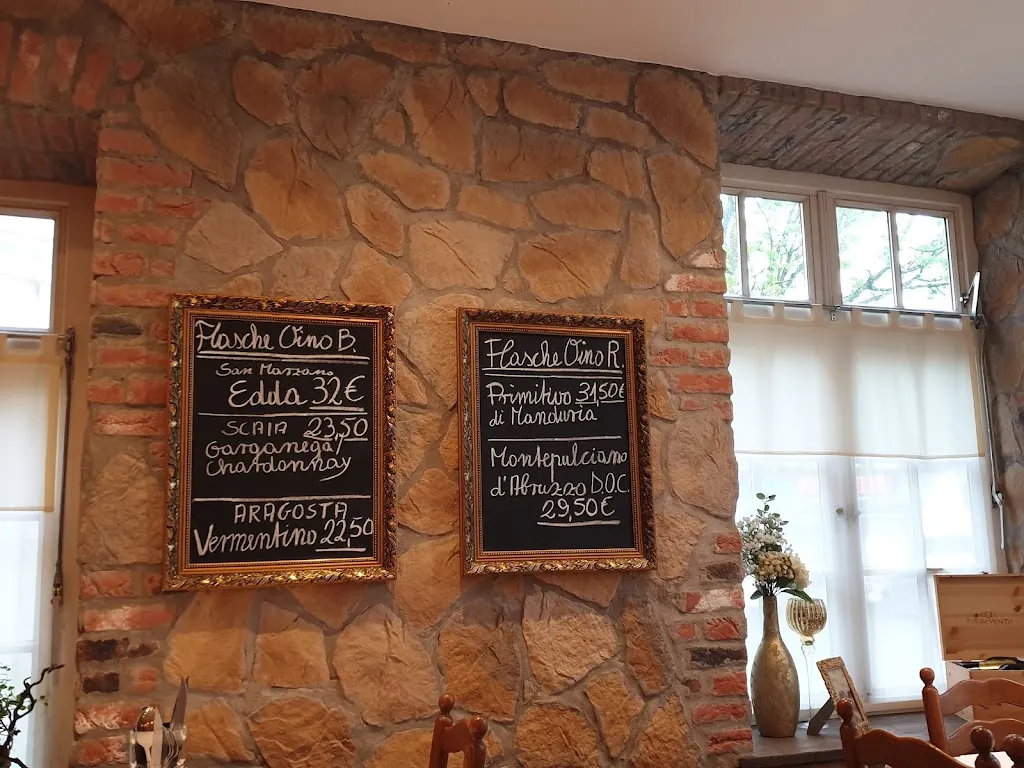 Flasche Vino B.
San Marzano
Edda 32€
SCAIA 23,50
Garganega/
Chardonnay
ARAGOSTA
Vermentino 22,50
Flasche Vino R.
Primitivo 31,50€
di Manduria
Montepulciano
d'Abruzzo D.O.C.
29,50€